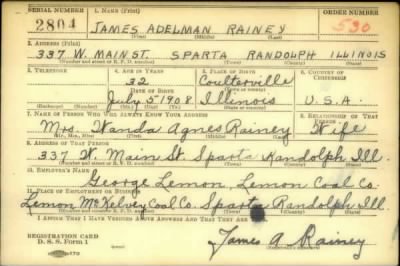 SERIAL NUMBER 1. NAME (Print) ORDER NUMBER
2804 JAMES ADELMAN RAINEY 530
(First) (Middle) (Last)
2. ADDRESS (Print)
337 W. MAIN ST. SPARTA RANDOLPH ILLINOIS
(Number and street or R. F. D. number) (Town) (County) (State)
3. TELEPHONE 4. AGE IN YEARS 5. PLACE OF BIRTH 6. COUNTRY OF CITIZENSHIP
32 Coulterville
DATE OF BIRTH (Town or county)
July 5 1908 Illinois U.S.A.
(Exchange) (Number) (Mo.) (Day) (Yr.) (State or country)
7. NAME OF PERSON WHO WILL ALWAYS KNOW YOUR ADDRESS 8. RELATIONSHIP OF THAT PERSON
Mrs. Wanda Agnes Rainey Wife
(Mr., Mrs., Miss) (First) (Middle) (Last)
9. ADDRESS OF THAT PERSON
337 W. Main St. Sparta Randolph Ill.
(Number and street or R. F. D. number) (Town) (County) (State)
10. EMPLOYER'S NAME
George Lemon, Lemon Coal Co.
11. PLACE OF EMPLOYMENT OR BUSINESS
Lemon McKelvey Coal Co. Sparta Randolph Ill.
(Number and street or R. F. D. number) (Town) (County) (State)
I AFFIRM THAT I HAVE VERIFIED ABOVE ANSWERS AND THAT THEY ARE TRUE.
REGISTRATION CARD
D. S. S. Form 1 James A Rainey